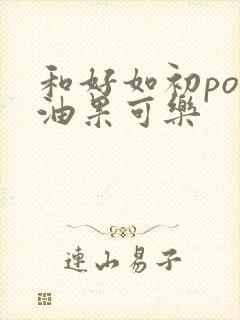 和好如初po
油果可樂
連山易子